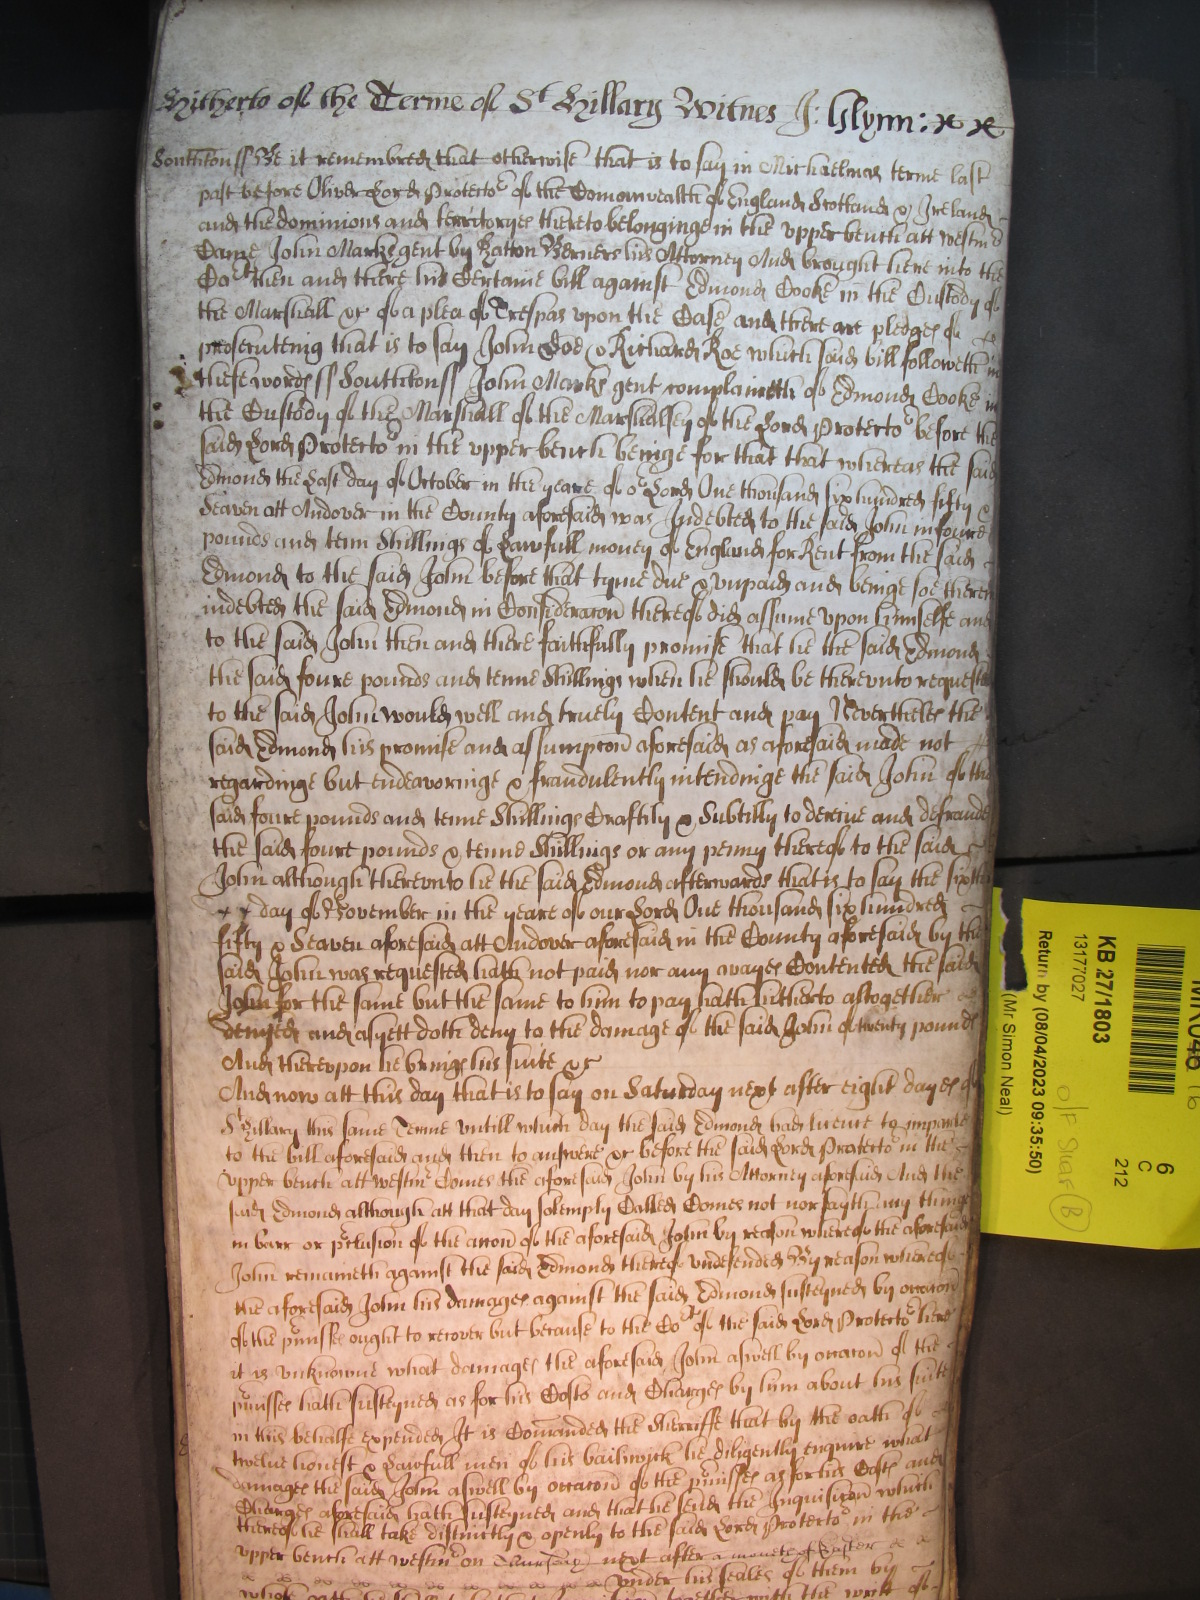 Hitherto of the Terme of St Hillary Witnes J: Glynn: x x
Southton ss Be it remembred that otherwise that is to say in Michaelmas terme last
past before Oliver Lord Protector of the Comonwealth of England Scotland & Ireland
and the dominions and territoryes thereto belonginge in the upper bench att Westmr
Came John Marks gent by Hatton Berners his Attorney And brought here into the
Court then and there his Certaine bill against Edmond Cooke in the Custody of
the Marshall &c of a plea of Trespas upon the Case and there are pledges of
prosecuteing that is to say John Doe & Richard Roe which said bill followeth in
these words ss Southton ss John Marks gent complaineth of Edmond Cooke in
the Custody of the Marshall of the Marshalsey of the Lord Protector before the
said Lord Protector in the upper bench beinge for that that whereas the said
Edmond the Last day of October in the yeare of or Lord One thousand six hundred fifty &
Seaven att Andover in the County aforesaid was Indebted to the said John in foure
pounds and tenn Shillings of Lawfull money of England for Rent from the said
Edmond to the said John before that tyme due & unpaid and beinge soe therein
indebted the said Edmond in Consideracon thereof did assume upon himselfe and
to the said John then and there faithfully promise that he the said Edmond
the said foure pounds and tenne Shillings when he should be thereunto requested
to the said John would well and truely Content and pay Neverthelesse the
said Edmond his promise and assumpcon aforesaid as aforesaid made not
regardinge but endeavoringe & fraudulently intendinge the said John of the
said foure pounds and tenne Shillings Craftily & Subtilly to deceive and defraude
the said foure pounds & tenne Shillings or any penny thereof to the said
John although thereunto he the said Edmond afterwards that is to say the sixth
x x day of November in the yeare of our Lord One thousand six hundred
fifty & Seaven aforesaid att Andover aforesaid in the County aforesaid by the
said John was requested hath not paid nor any wayes Contented the said
John for the same but the same to him to pay hath hitherto altogether
denyed and as yett doth deny to the damage of the said John of twenty pounds
And thereupon he brings his suite &c
And now att this day that is to say on Saturday next after eight dayes of
St Hillary this same Terme untill which day the said Edmond had licence to imparle
to the bill aforesaid and then to answere &c before the said Lord Protector in the
upper bench att Westmr Comes the aforesaid John by his Attorney aforesaid And the
said Edmond although att that day solemply Called Comes not nor sayth any thinge
in barr or prclusion of the accon of the aforesaid John by reason whereof the aforesaid
John remaineth against the said Edmond thereof undefended By reason whereof
the aforesaid John his damages against the said Edmond susteyned by occacon
of the prmisses ought to recover but because to the Court of the said Lord Protector here
it is unknowne what damages the aforesaid John aswell by occacon of the
prmisses hath susteyned as for his Costs and Charges by him about his suite
in this behalfe expended It is Comanded the Sherriffe that by the oath of
twelve honest & Lawfull men of his bailiwick he diligently enquire what
damages the said John aswell by occacon of the prmisses as for his Costs and
Charges aforesaid hath susteyned and that he send the Inquisicon which
thereof he shall take distinctly & openly to the said Lord Protector in the
upper bench att Westmr on next after a moneth of Easter
under his seale & of them by
whose oath together with the writt of
KB 27/1803
13177027
Return by (08/04/2023 09:35:50)
(Mr Simon Neal)
6
C
212
O/F Shelf B